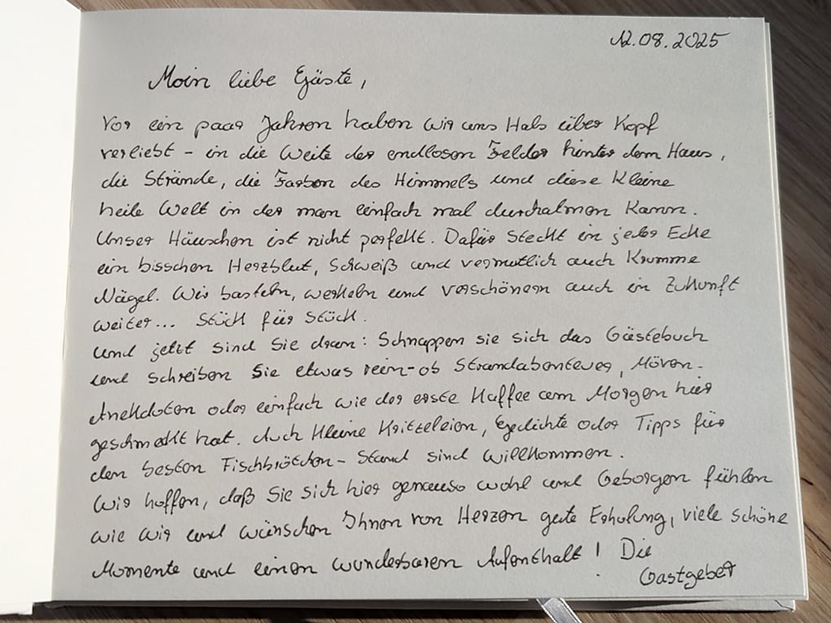 12.08.2025
Moin liebe Gäste,
Vor ein paar Jahren haben wir uns Hals über Kopf
verliebt - in die Weite der endlosen Felder hinter dem Haus,
die Strände, die Farben des Himmels und diese kleine
heile Welt in der man einfach mal durchatmen kann.
Unser Häuschen ist nicht perfekt. Dafür steckt in jeder Ecke
ein bisschen Herzblut, Schweiß und vermutlich auch krumme
Nägel. Wir basteln, werkeln und verschönern auch in Zukunft
weiter... Stück für Stück.
Und jetzt sind Sie dran: Schnappen sie sich das Gästebuch
und schreiben Sie etwas rein - ob Strandabenteuer, Möven-
Anekdoten oder einfach wie der erste Kaffee am Morgen hier
geschmeckt hat. Auch kleine Kritzeleien, Gedichte oder Tipps für
den besten Fischbrötchen - Stand sind willkommen.
Wir hoffen, daß Sie sich hier genauso wohl und Geborgen fühlen
wie wir und wünschen Ihnen von Herzen gute Erholung, viele schöne
Momente und einen wunderbaren Aufenthalt! Die
Gastgeber